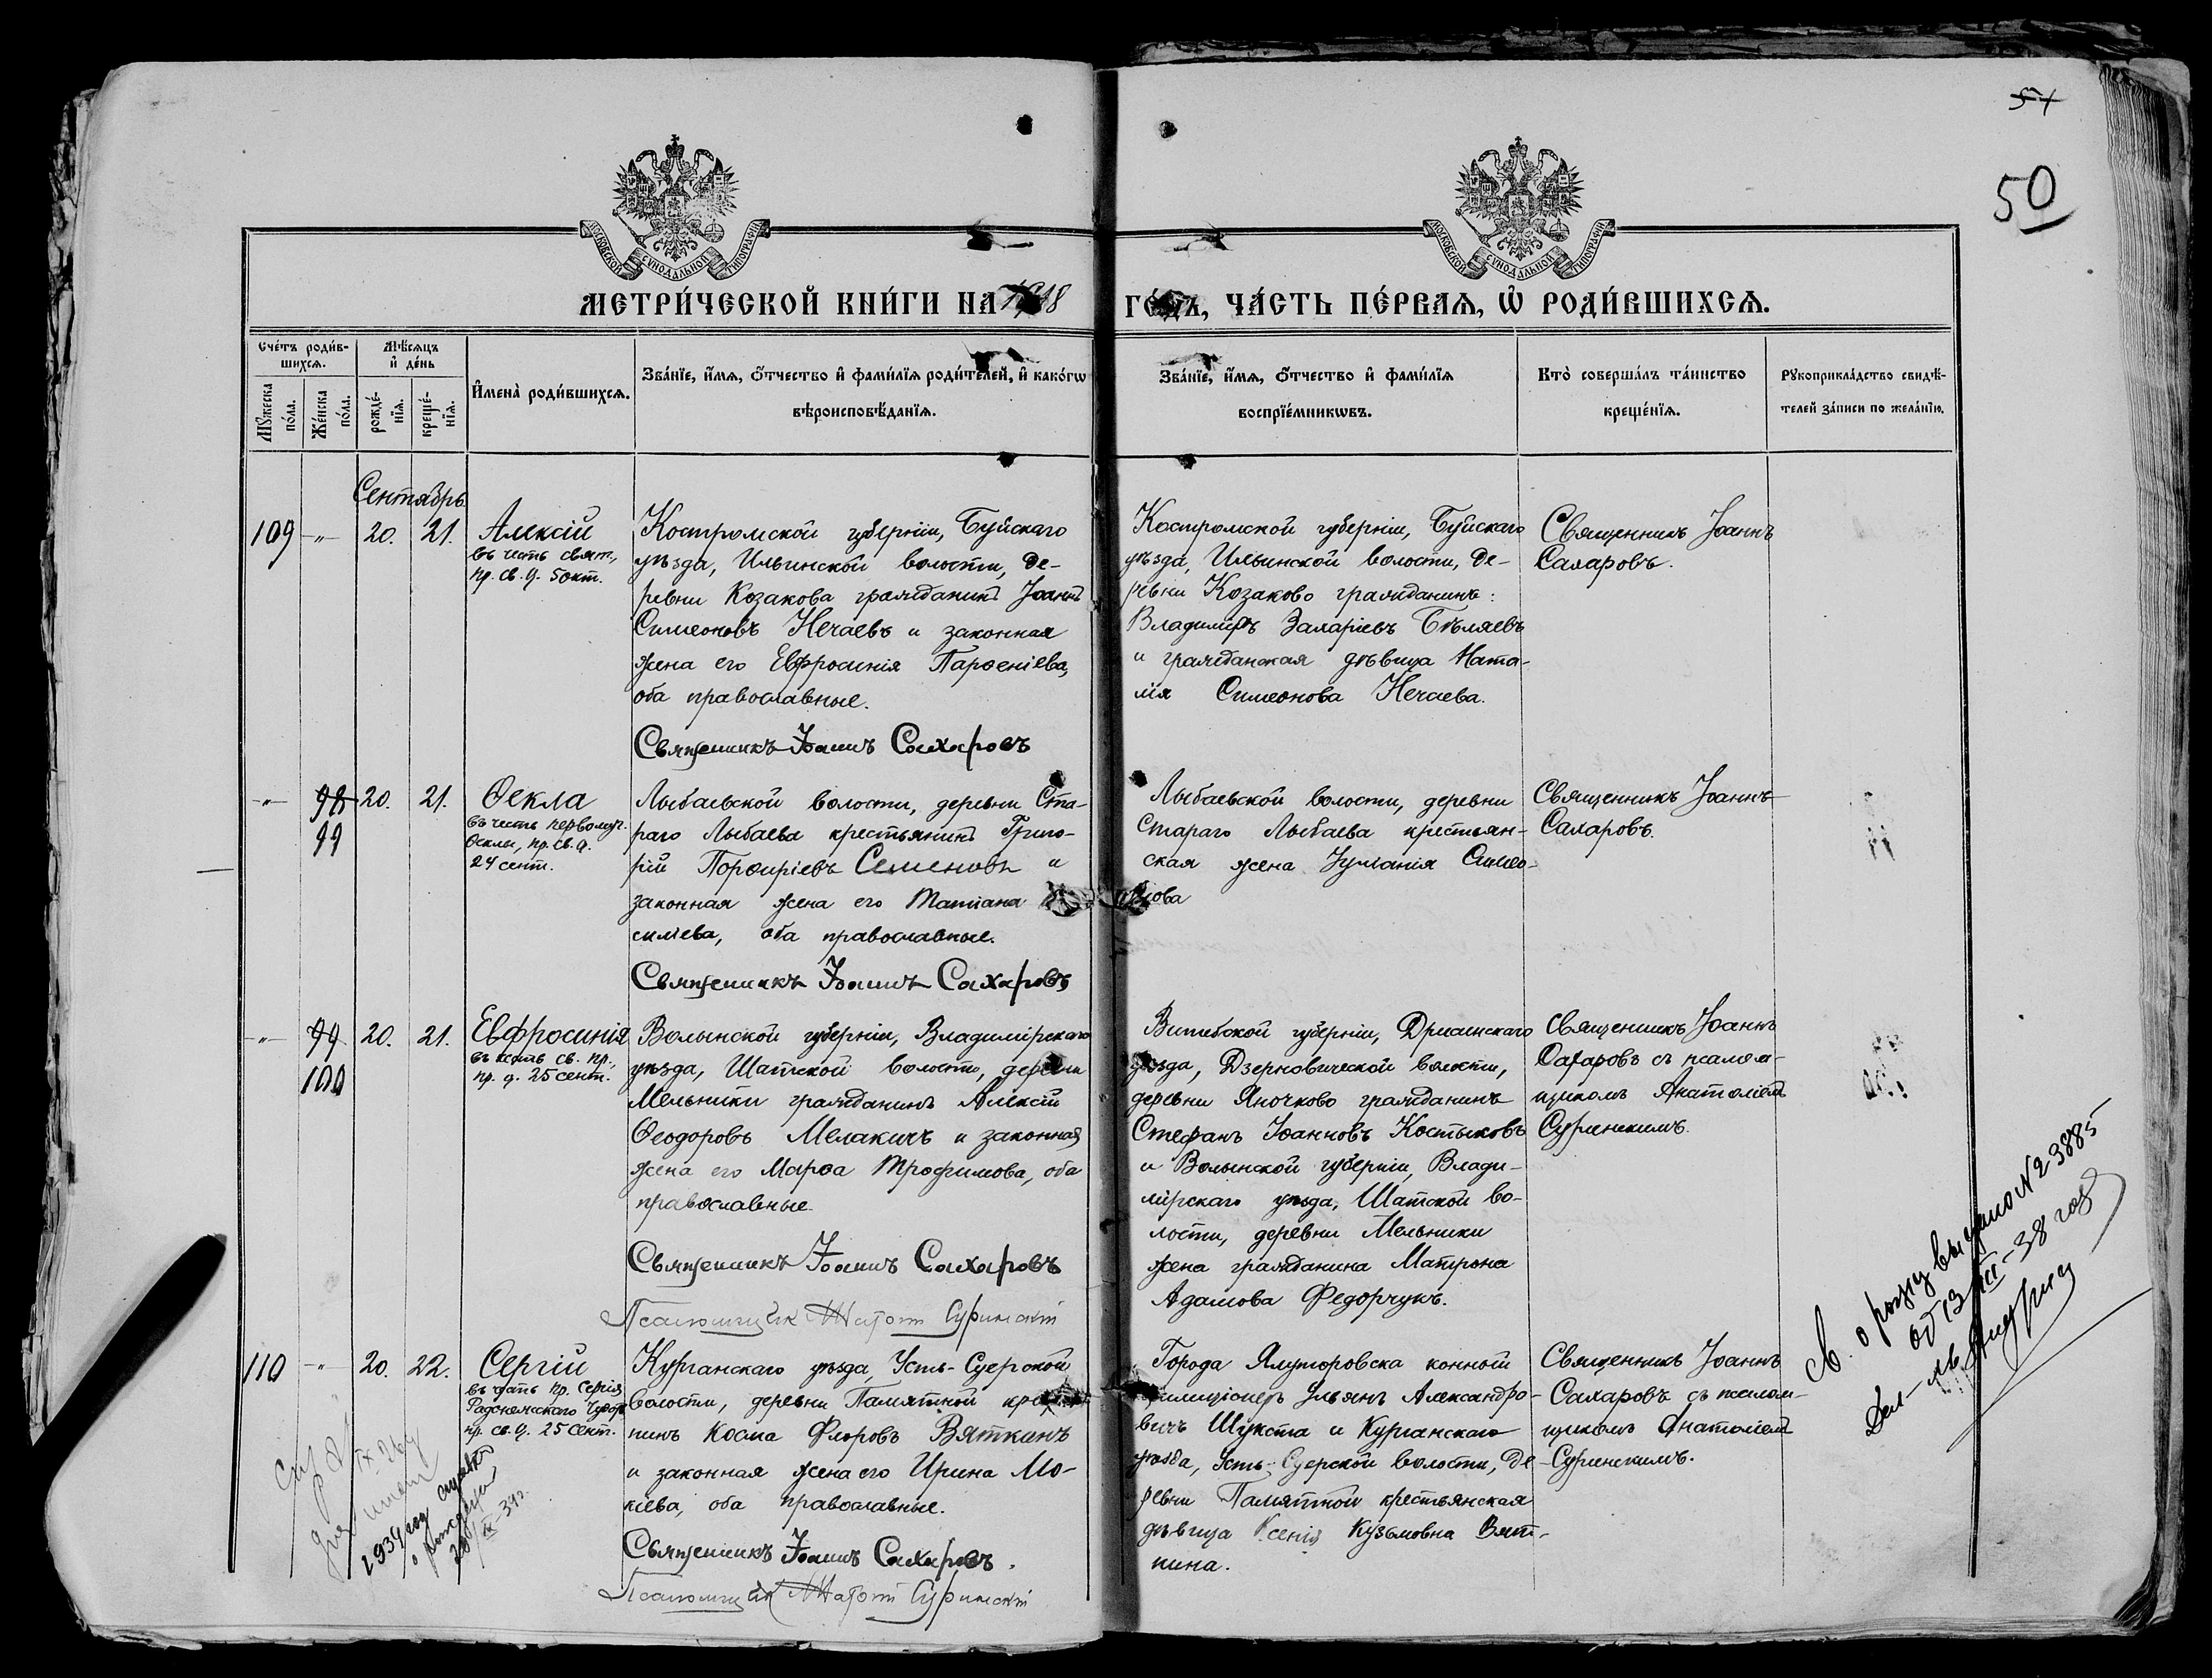 54
50
МОСКОВСКОЙ СѴНОДАЛЬНОЙ ТИПОГРАФІИ
МОСКОВСКОЙ СѴНОДАЛЬНОЙ ТИПОГРАФІИ
МЕТРИ́ЧЕСКОЙ КНИ́ГИ НА 1918 ГО́ДЪ, ЧА́СТЬ ПЕ́РВАЯ, Ѡ҆ РОДИ́ВШИХСЯ.
Сче́тъ роди́в-
шихся.
Мѣ́сяцъ
и҆ де́нь
Мꙋ́жеска
по́ла.
Же́нска
по́ла.
рожде́-
нїя.
креще́-
нїя.
И҆мена̀ роди́вшихся.
Зва́нїе, и҆́мя, ѻ҆́тчество и҆ фами́лїя роди́телей, и҆ како́гѡ
вѣроисповѣ́данїя.
Зва́нїе, и҆́мя, ѻ҆́тчество и҆ фами́лїя
воспрїе́мникѡвъ.
Кто̀ соверша́лъ та́инство
креще́нїя.
Рꙋкоприкла́дство свидѣ́-
телей за́писи по жела́нїю.
Сентябрь
109 -"- 20. 21.
Алексій
въ честь свят.,
пр. св. 9. 5 окт.
Костромской губерніи, Буйскаго
уѣзда, Ильинской волости, де-
ревни Козакова гражданинъ Іоаннъ
Симеоновъ Нечаевъ и законная
жена его Евфросинія Парѳеніева,
оба православные.
Священникъ Іоаннъ Сахаровъ
Костромской губерніи, Буйскаго
уѣзда, Ильинской волости, де-
ревни Козаково гражданинъ:
Владиміръ Захаріевъ Бѣляевъ
и гражданская дѣвица Ната-
лія Симеонова Нечаева.
Священникъ Іоаннъ
Сахаровъ.
-"- 98 20. 21.
99
Ѳекла
въ честь первомуч.
Ѳеклы, пр. св. 9.
24 сент.
Лыбаевской волости, деревни Ста-
раго Лыбаева крестьянинъ Григо-
рій Порфиріевъ Семеновъ и
законная жена его Татіана
силіева, оба православные.
Священникъ Іоаннъ Сахаровъ
Лыбаевской волости, деревни
Стараго Лыбаева крестьян-
ская жена Іуліанія Симео-
нова
Священникъ Іоаннъ
Сахаровъ.
-"- 99 20. 21.
100
Евфросинія
въ честь св. пр.,
пр. 9. 25 сент.
Волынской губерніи, Владимірскаго
уѣзда, Шатской волости, деревни
Мельники гражданинъ Алексій
Ѳеодоровъ Мелакичъ и законная
жена его Марѳа Трофимова, оба
православные.
Священникъ Іоаннъ Сахаровъ
Псаломщик Анатолій Суринскій
Витебской губерніи, Дрисенскаго
уѣзда, Дзерновической волости,
деревни Яночково гражданинъ
Стефанъ Іоанновъ Костыковъ
и Волынской губерніи, Влади-
мірскаго уѣзда, Шатской во-
лости, деревни Мельники
жена гражданина Матрона
Адамова Федорчукъ.
Священникъ Іоаннъ
Сахаровъ съ псалом-
щикомъ Анатоліемъ
Суринскимъ.
110 -"- 20. 22.
Сергій
въ честь пр. Сергія
Радонежскаго Чудотв.
пр. св. 9. 25 сент.
Курганскаго уѣзда, Усть-Суерской
волости, деревни Памятной
нинъ Косма Флоровъ Вяткинъ
и законная жена его Ирина Мо-
кіева, оба православные.
Священникъ Іоаннъ Сахаровъ.
Псаломщик Анатолій Суринскій
Города Ялуторовска конный
милиціонеръ Ульянъ Александро-
вичъ Шукста и Курганскаго
уѣзда, Усть-Суерской волости, де-
ревни Памятной крестьянская
дѣвица Ксенія Кузьмовна Вят-
кина.
Священникъ Іоаннъ
Сахаровъ съ псалом-
щикомъ Анатоліемъ
Суринскимъ.
1934 год
о рождении
св. о рожд выдано № 23885
от 13 III-38 года